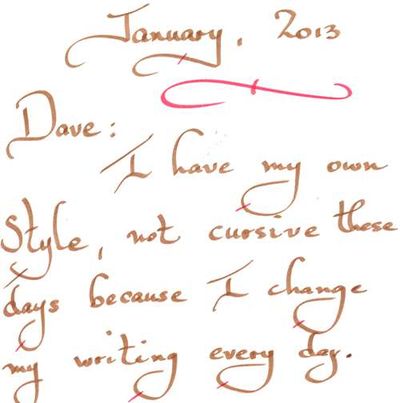 January, 2013
Dave:
I have my own
Style, not cursive these
days because I change
my writing every day.